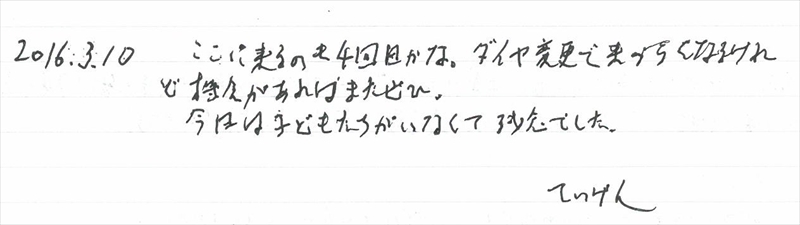 2016.3.10 ここに来るのも4回目かな。ダイヤ変更で来づらくなるけれ
ど機会があればまたぜひ。
今日は子どもたちがいなくて残念でした。
ていげん